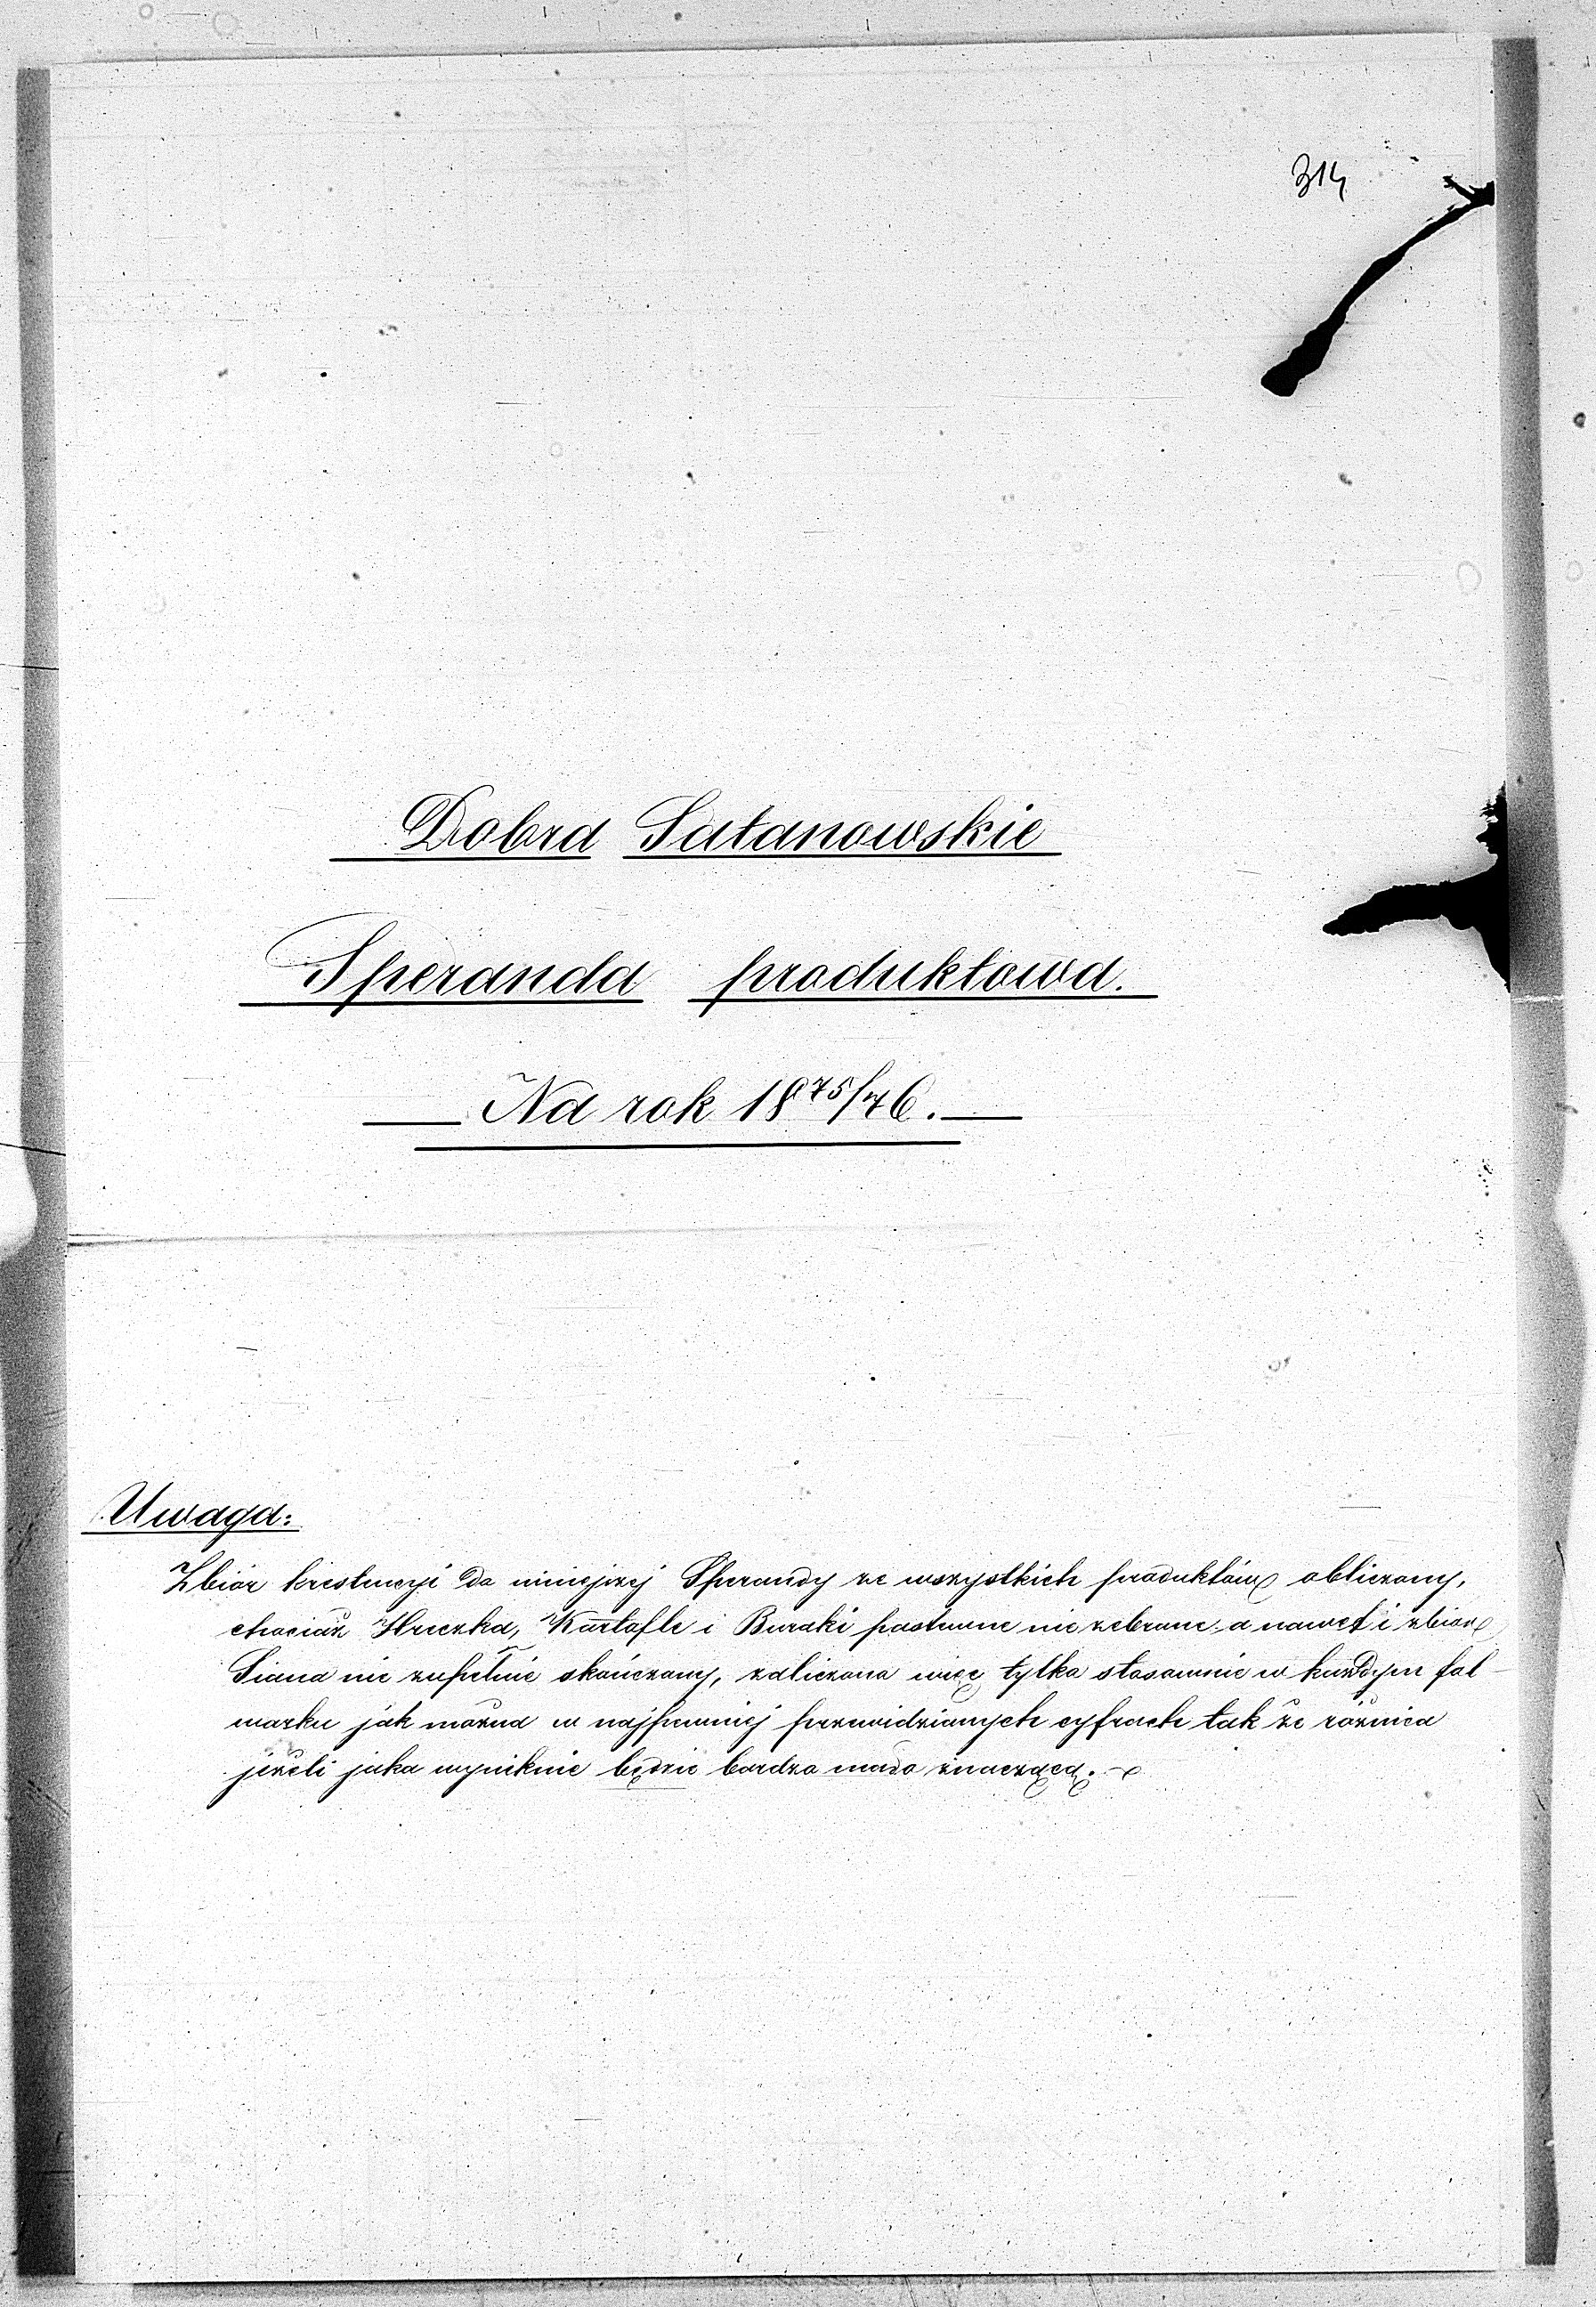 314
Dobra Satanowskie
Speranda produktowa.
Na rok 1875/76.
Uwaga:
Zbiór krestencyi do niniejszej Sperandy ze wszystkich produktów obliczony,
chociaż Hreczka, Kartofle i Buraki pastewne nie zebrane a nawet i zbiór
Siana nie zupełnie skończony, zaliczona więc tylko stosownie w każdym fol-
warku jak można w najpewniej przewidzianych cyfrach tak że różnica
jeżeli jaka wyniknie będzie bardzo mało znaczącą.